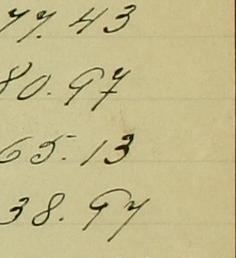 77.43
80.97
65.13
38.97